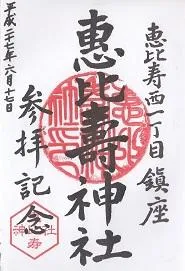 恵比寿西一丁目鎮座
惠比壽神社
参拝記念
平成二十七年六月十七日